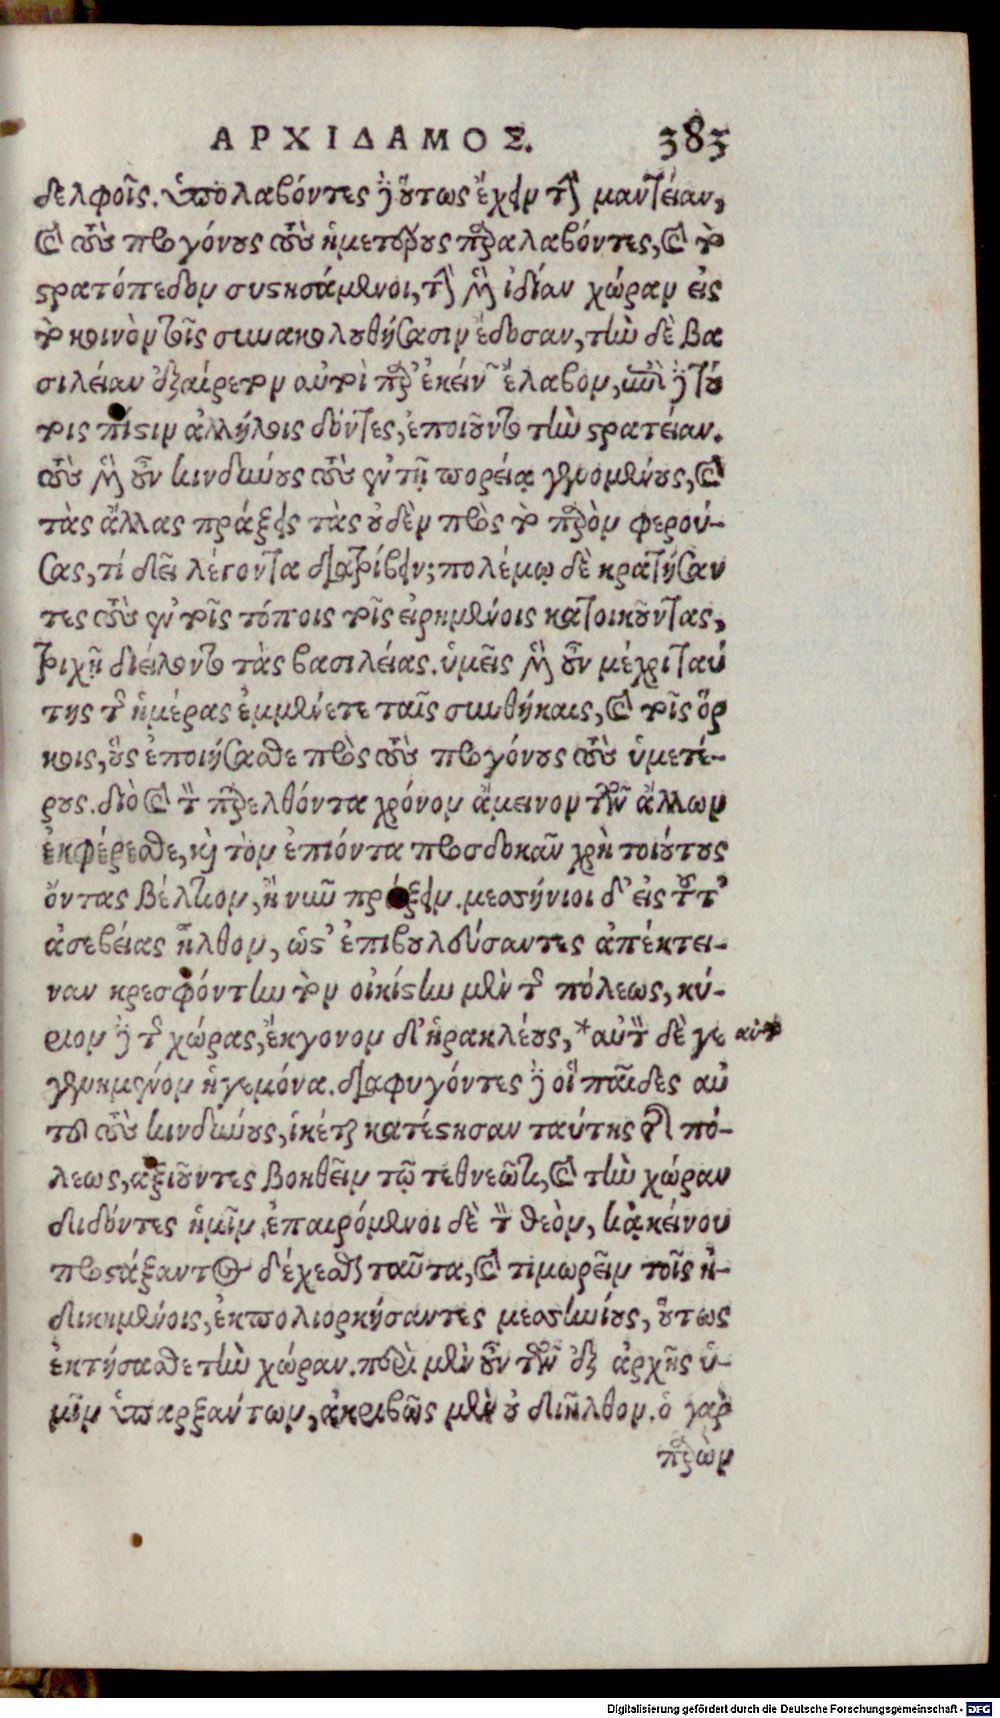 ΑΡΧΙΔΑΜΟΣ. 383
δελφοῖς. ὑπολαβόντες δ' οὕτως ἔχειν τὴν μαντείαν,
καὶ τοὺς προγόνους τοὺς ἡμετέρους παραλαβόντες, καὶ τὸ
στρατόπεδον συστησάμενοι, τὴν μὲν ἰδίαν χώραν εἰς
τὸ κοινὸν τοῖς συνακολουθήσασιν ἔδοσαν, τὴν δὲ βα
σιλείαν ἐξαίρετον αὐτοὶ παρ' ἐκείνων ἔλαβον, ἐπὶ δὲ τού
τοις πίστιν ἀλλήλοις δόντες, ἐποιοῦντο τὴν στρατείαν.
τοὺς μὲν οὖν κινδύνους τοὺς ἐν τῇ πορείᾳ γενομένους, καὶ
τὰς ἄλλας πράξεις τὰς οὐδὲν πρὸς τὸ παρὸν φερού-
σας, τί δεῖ λέγοντα διατρίβειν; πολέμῳ δὲ κρατήσαν
τες τοὺς ἐν τοῖς τόποις τοῖς εἰρημένοις κατοικοῦντας,
τριχῇ διείλοντο τὰς βασιλείας. ὑμεῖς μὲν οὖν μέχρι ταύ
της τῆς ἡμέρας ἐμμένετε ταῖς συνθήκαις, καὶ τοῖς ὅρ
κοις, οὓς ἐποιήσασθε πρὸς τοὺς προγόνους τοὺς ὑμετέ-
ρους. διὸ καὶ τὸν παρελθόντα χρόνον ἄμεινον τῶν ἄλλων
ἐκφέρεσθε, καὶ τὸν ἐπιόντα προσδοκᾶν χρὴ τοιούτους
ὄντας βέλτιον, ἢ νῦν πράξειν. μεσσήνιοι δ' εἰς τοῦτ'
ἀσεβείας ἦλθον, ὥστ' ἐπιβουλεύσαντες ἀπέκτει-
ναν κρεσφόντην τὸν οἰκιστὴν μὲν τῆς πόλεως, κύ-
ριον δὲ τῆς χώρας, ἔκγονον δ' ἡρακλέους, *αὐτὸν δὲ γε αὐτῶν
γενημένον ἡγεμόνα. διαφυγόντες δὲ οἱ παῖδες αὐ
τοῦ τοὺς κινδύνους, ἱκέται κατέστησαν ταύτης τῆς πό-
λεως, ἀξιοῦντες βοηθεῖν τῷ τεθνεῶτι, καὶ τὴν χώραν
διδόντες ἡμῖν. ἐπαιρόμενοι δὲ τὸν θεὸν, κᾀκείνου
προστάξαντος δέχεσθαι ταῦτα, καὶ τιμωρεῖν τοῖς ἠ-
δικημένοις, ἐκπολιορκήσαντες μεσσηνίους, οὕτως
ἐκτήσασθε τὴν χώραν. περὶ μὲν οὖν τῶν ἐξ ἀρχῆς ὑ-
μῖν ὑπαρξάντων, ἀκριβῶς μὲν οὐ διῆλθον. ὁ γὰρ
παρὼν
Digitalisierung gefördert durch die Deutsche Forschungsgemeinschaft - DFG